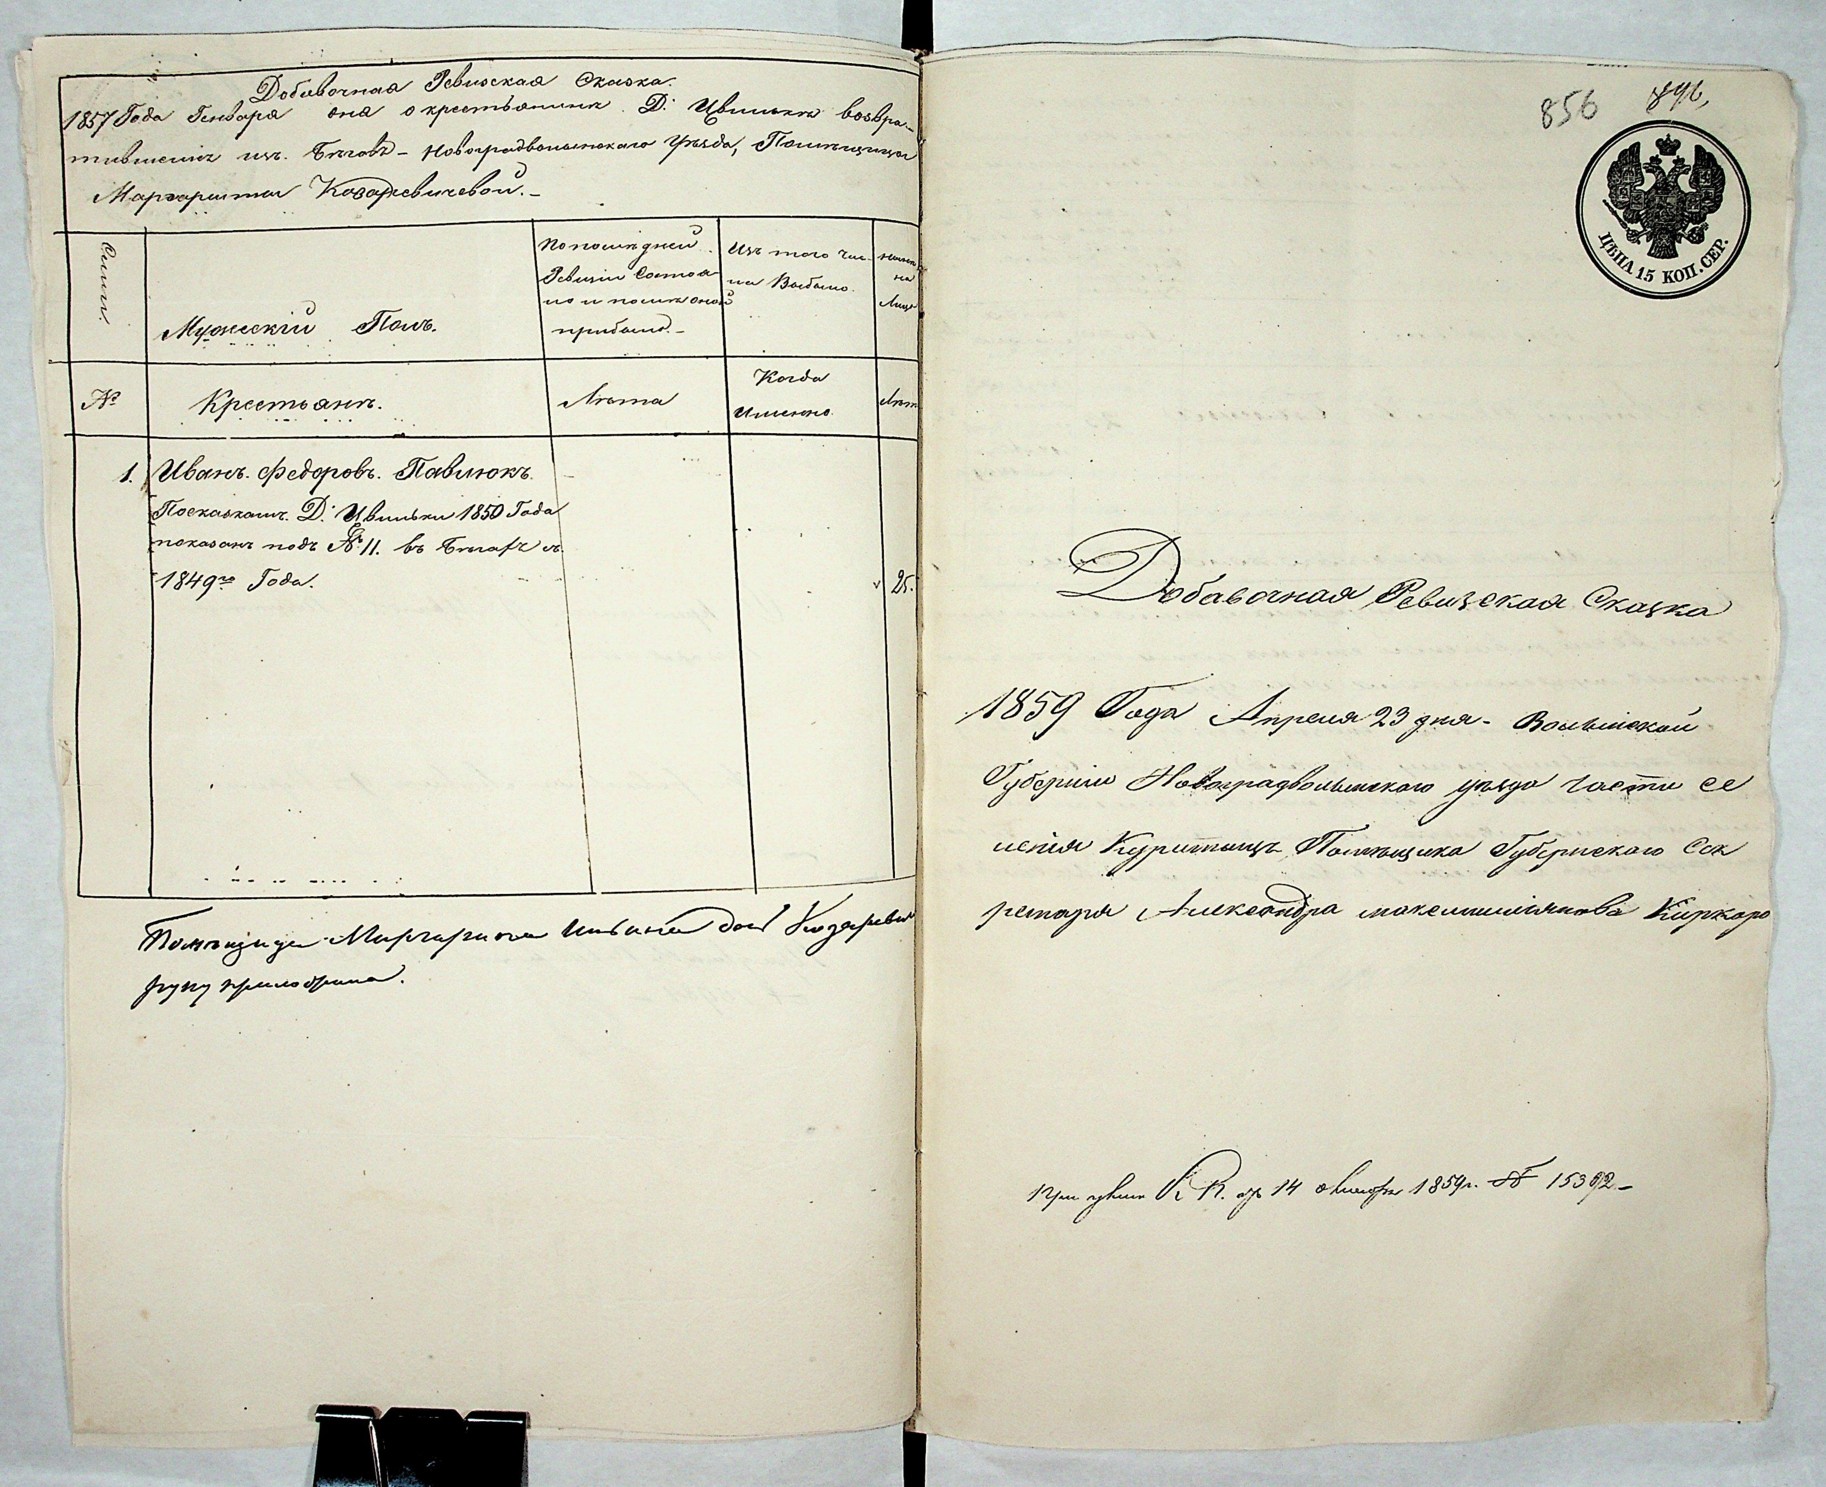 Добавочная Ревизская Сказка.
1857 Года Генваря дня о крестьянинѣ Д: Цвильки возвра-
тившемся изъ Бѣговъ - Новоградволынского Уѣзда, Помѣщицы
Маргариты Козаревичевой. -
Мужескій Полъ.
По послѣдней
Ревизіи Состоя
ло и послѣ оной
прибыло. -
Изъ того чис-
ла Выбыло
нынѣ
на
Лицо
№
Крестьянъ.
Лѣта
Когда
Именно
Лѣта
1. Иванъ Федоровъ Павлюкъ
По сказкамъ Д: Цвильки 1850 Года
показанъ подъ № 11. въ Бѣгахъ съ
1849го Года.
25.
Помѣщица Маргарита Козаревич
руку приложила.
856
896
ЦѢНА 15 КОП. СЕР.
Добавочная Ревизская Сказка
1859 Года Апреля 23 дня - Волынской
Губерніи Новоградволынского уѣзда части се
ленія Куритыцъ Помѣщика Губернского Сек
ретаря Александра максимиліянова Киркоро
При К. П. 14 октября 1859 г. № 15392 -